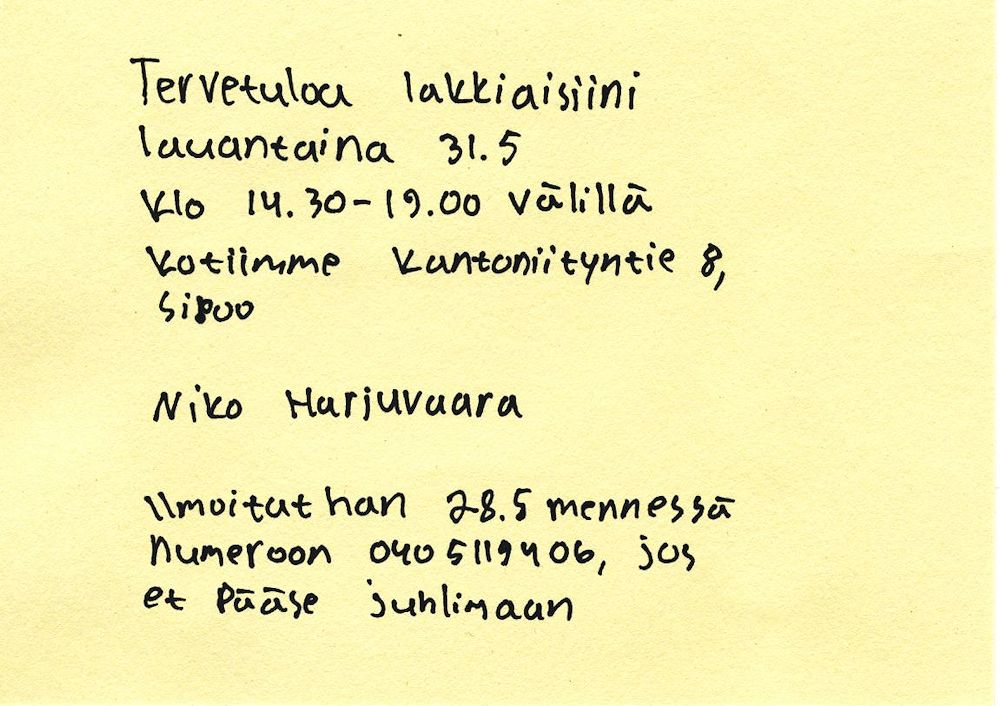 Tervetuloa lakkiaisiini
lauantaina 31.5
klo 14.30-19.00 välillä
kotiimme Kantoniityntie 8,
Sipoo
Niko Harjuvaara
Ilmoitathan 28.5 mennessä
numeroon 040 5119406, jos
et pääse juhlimaan